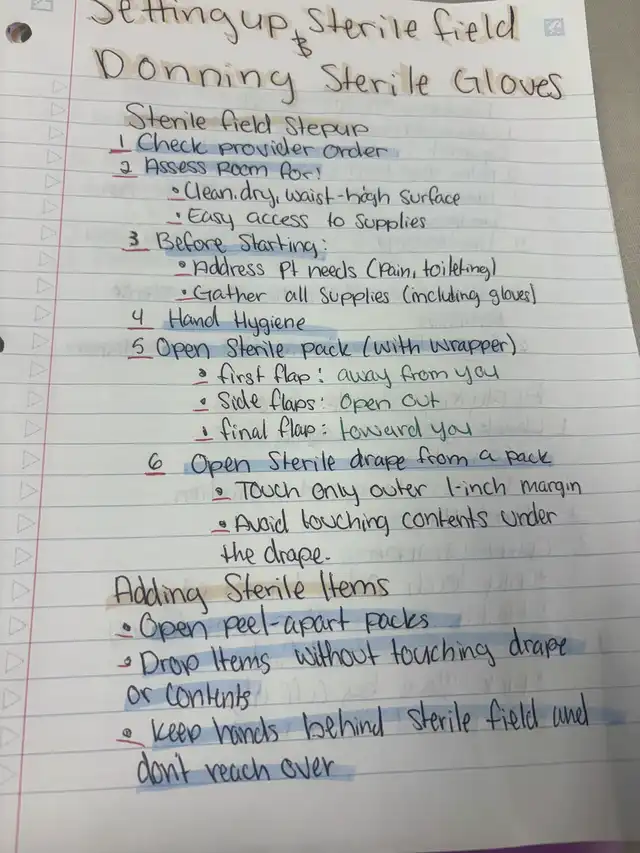 Setting up Sterile field
&
Donning Sterile Gloves
Sterile field Stepup
1 Check provider order
2 Assess Room for:
• Clean, dry, waist-high surface
• Easy access to supplies
3 Before Starting:
• Address Pt needs (Pain, toileting)
• Gather all supplies (including gloves)
4 Hand Hygiene
5 Open Sterile pack (with wrapper)
• first flap: away from you
• Side flaps: Open out
• final flap: toward you
6 Open Sterile drape from a pack
• Touch only outer 1-inch margin
• Avoid touching contents under
the drape.
Adding Sterile Items
• Open peel-apart packs
• Drop Items without touching drape
or contents
• Keep hands behind sterile field and
don't reach over